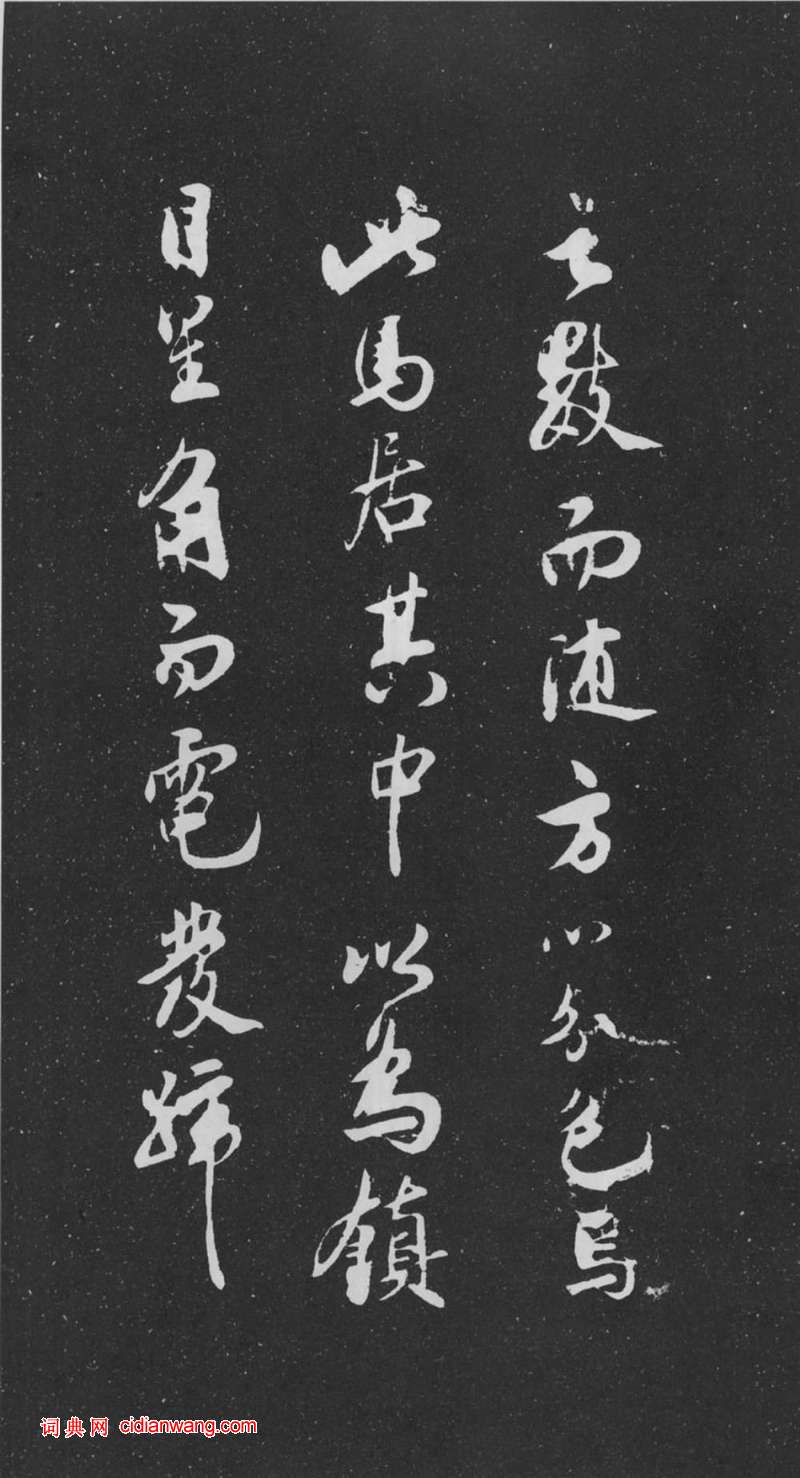 之數而随方以分色焉
此馬居其中以為鎮
目星角而電發蹄
词典网 cidianwang.com